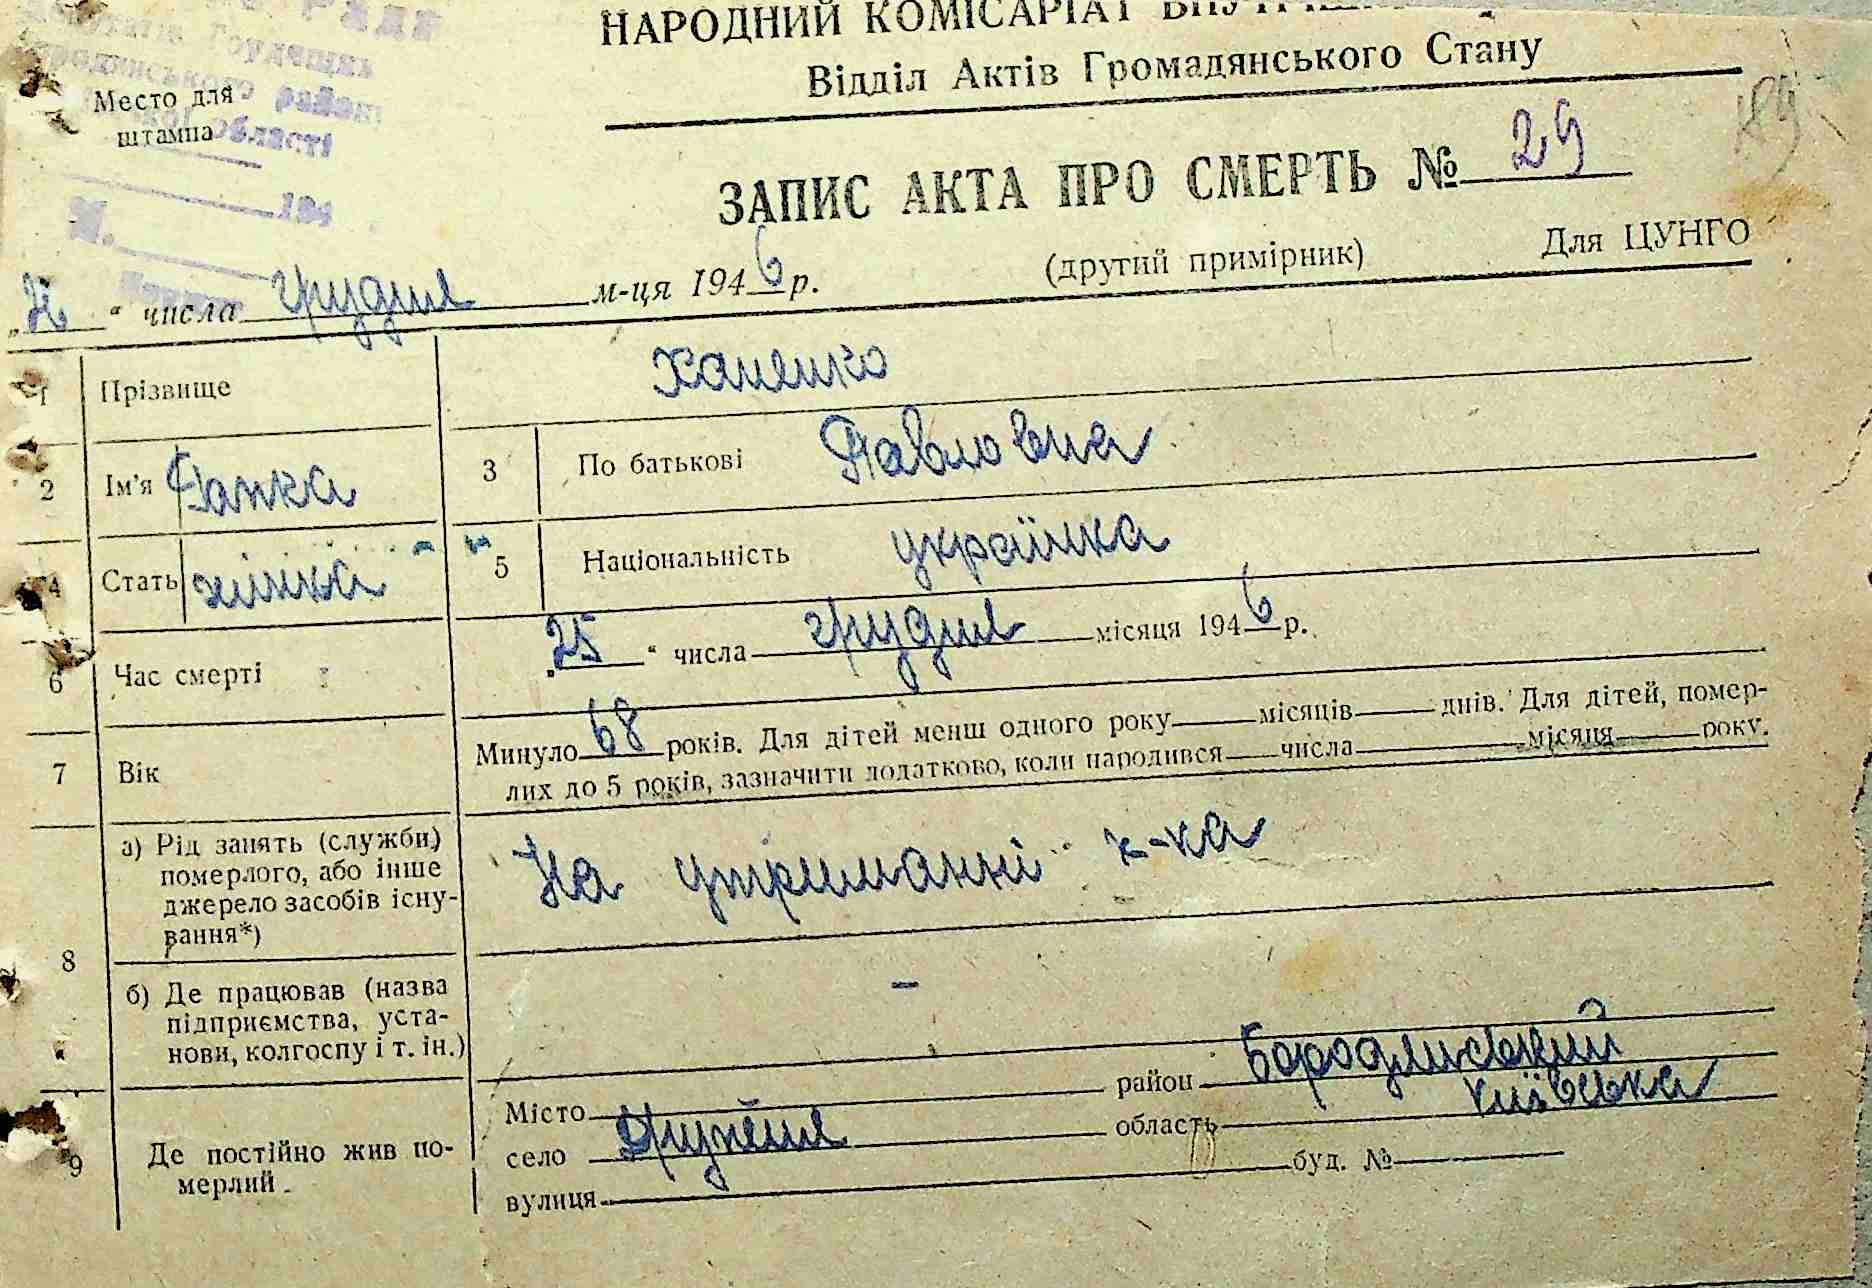 НАРОДНИЙ КОМІСАРІАТ
Відділ Актів Громадянського Стану
Место для
штампа
області
194
ЗАПИС АКТА ПРО СМЕРТЬ № 29
189
(другий примірник) Для ЦУНГО
" числа грудня м-ця 1946 р.
1 Прізвище Ханенко
2 Ім'я Гапка 3 По батькові Павловна
4 Стать жінка 5 Національність українка
6 Час смерті „25“ числа грудня місяця 1946 р.
7 Вік Минуло 68 років. Для дітей менш одного року місяців днів. Для дітей, помер-
лих до 5 років, зазначити додатково, коли народився числа місяця року.
8 а) Рід занять (служби) померлого, або інше джерело засобів існу-вання*) На утриманні к-ка
б) Де працював (назва підприємства, уста-нови, колгоспу і т. ін.) –
9 Де постійно жив по-мерлий
Місто район Бородянський
село Дружня область Київська
вулиця буд. №